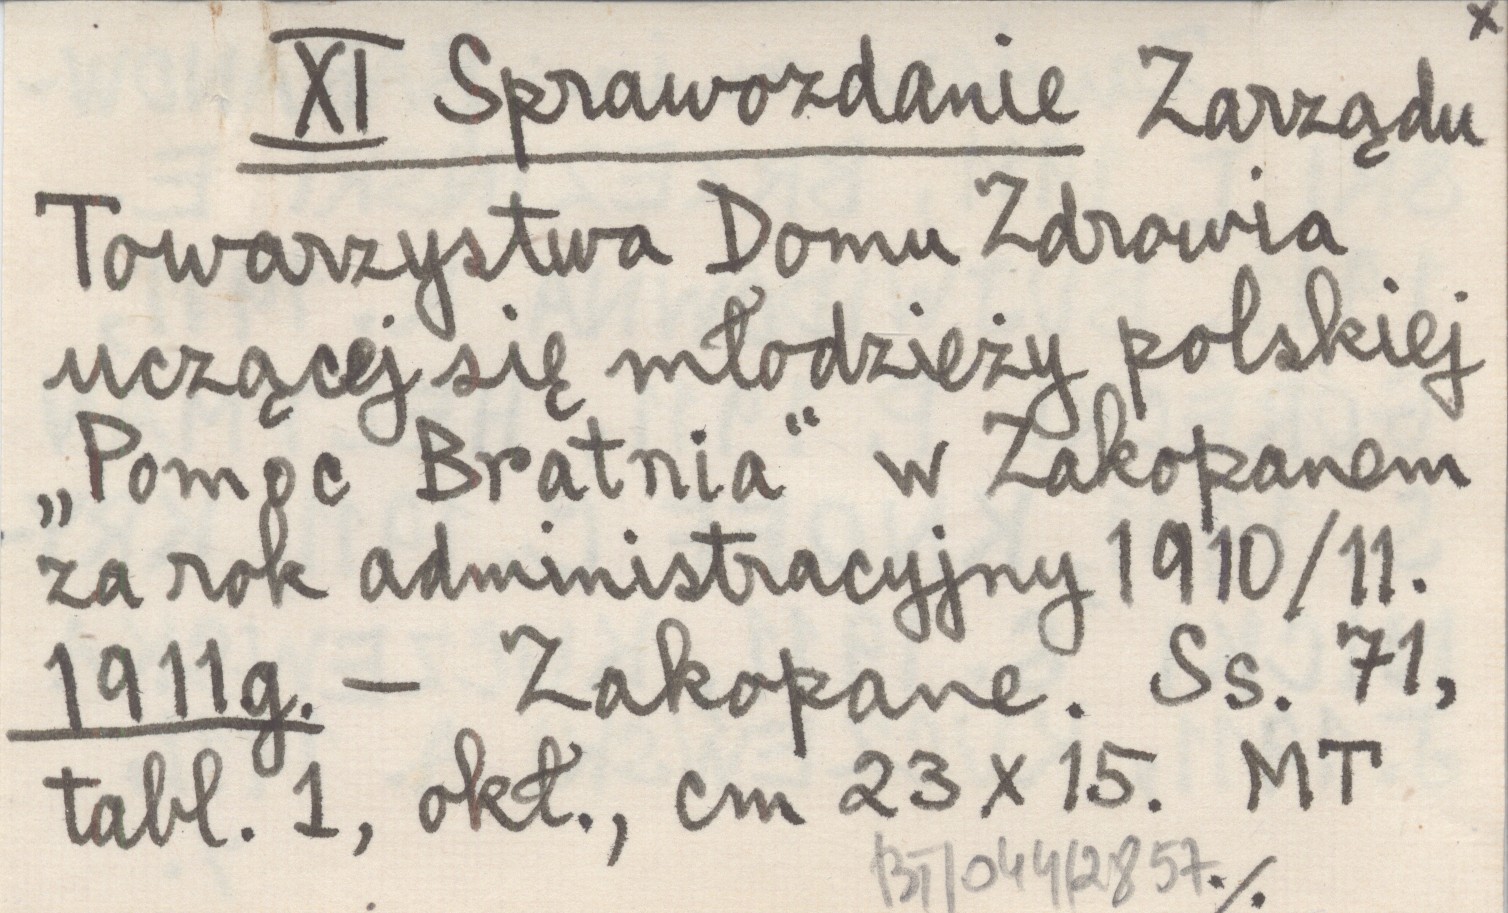 x
XI Sprawozdanie Zarządu
Towarzystwa Domu Zdrowia
uczącej się młodzieży polskiej
„Pomoc Bratnia“ w Zakopanem
za rok administracyjny 1910/11.
1911g. — Zakopane. Ss. 71,
tabl. 1, okł., cm 23 x 15. MT
./.